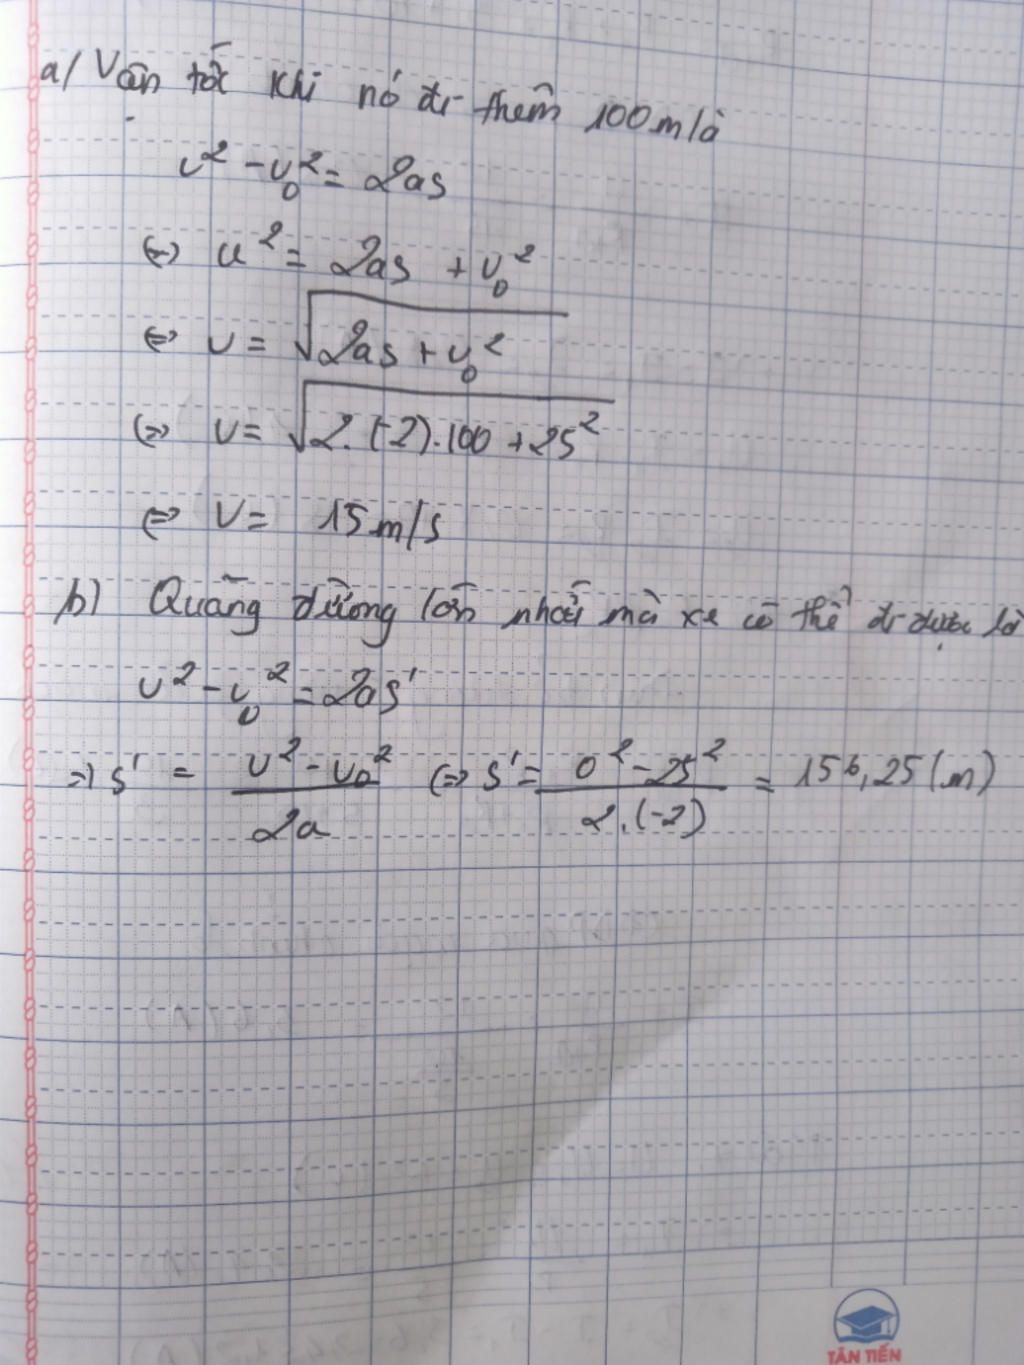 a/ Vận tốc khi nó đi thêm 100m là
v² - v₀² = 2as
(=) v² = 2as + v₀²
(=) v = √(2as + v₀²)
(=) v = √(2.(-2).100 + 25²)
(=) v = 15m/s
b) Quãng đường lớn nhất mà xe có thể đi được là
v² - v₀² = 2as'
=) s' = (v² - v₀²)/2a (=) s' = (0² - 25²)/(2.(-2)) = 156,25 (m)
TÂN TIẾN